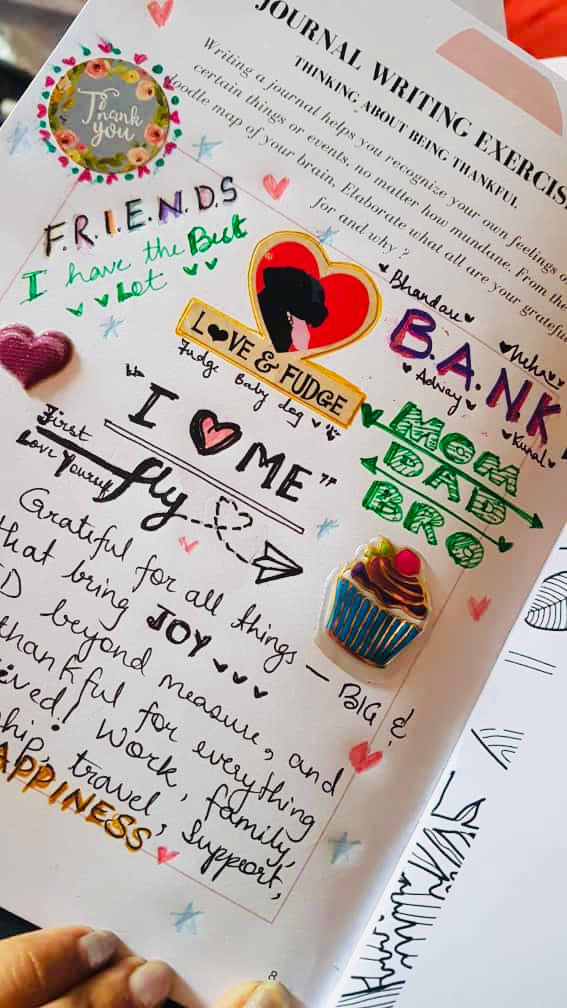 JOURNAL WRITING EXERCIS
THINKING ABOUT BEING THANKFUL
Writing a journal helps you recognize your own feelings o
certain things or events, no matter how mundane. From the
doodle map of your brain, Elaborate what all are your grateful
for and why ?
Thank
you
F.R.I.E.N.D.S
I have the Best
Lot
LOVE & FUDGE
Fudge Baby dog
Bhandare
B.A.N.K
Neha
Advay
Kunal
MOM
DAD
BRO
"I ME"
First
Love Yourself
fly
Grateful for all things – BIG &
that bring JOY
ED beyond measure, and
thankful for everything
eved! Work, family,
ship, travel, support,
APPINESS
8